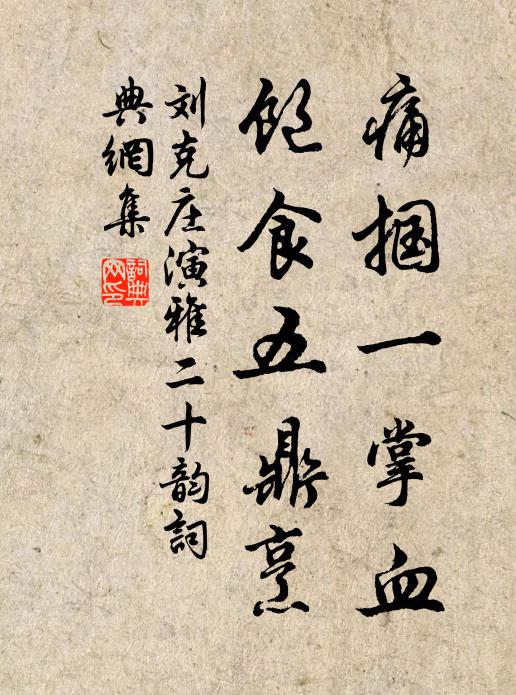 痛掴一掌血
飽食五鼎烹
刘克庄演雅二十韵詞
典網集
詞典網印